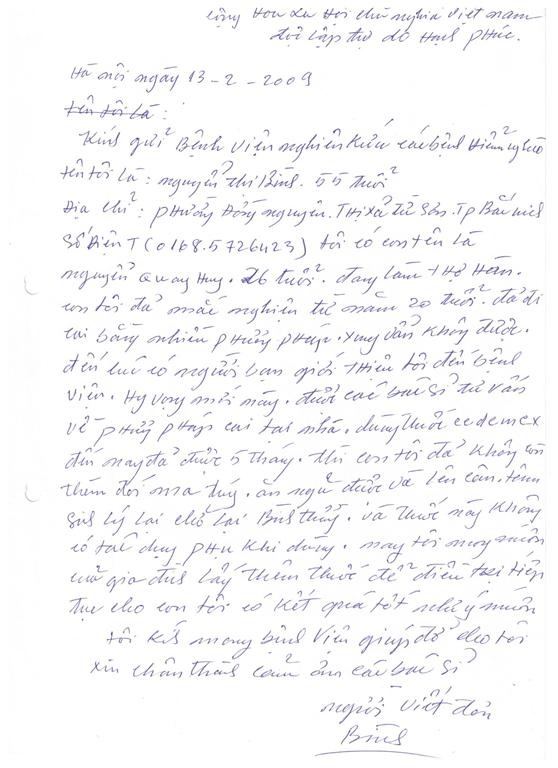 cộng Hoà Xã Hội chủ nghĩa Việt nam
độc lập tự do Hạnh phúc.
Hà nội ngày 13-2-2009
tên tôi là :
Kính gửi Bệnh Viện nghiên cứu các bệnh Hiểm nghèo
tên tôi là : nguyễn thị Bính. 55 tuổi
Địa chỉ : phường Đồng nguyên. Thị xã từ Sơn. Tp Bắc ninh
Số điện T (0168.5726423) tôi có con tên là
nguyễn Quang Huy. 26 tuổi. đang làm thợ Hàn.
con tôi đã mắc nghiện từ năm 20 tuổi. đã đi
cai bằng nhiều phương pháp. xong vẫn không được.
đến lúc có người bạn giới thiệu tôi đến bệnh
viện. Hy vọng mới này. được các bác sĩ tư vấn
về phương pháp cai tại nhà. dùng thuốc cedemex
đến nay đã được 5 tháng. thì con tôi đã không còn
thèm đói ma túy. ăn ngủ được và lên cân. tâm
sinh lý lại trở lại Bình thường. và thuốc này không
có tác dụng phụ khi dùng. nay tôi mong muốn
của gia đình lấy thêm thuốc để điều trị tiếp
tục cho con tôi có kết quả tốt như ý muốn
tôi kính mong bệnh Viện giúp đỡ cho tôi
xin chân thành cảm ơn các bác sĩ
người viết đơn
Bính